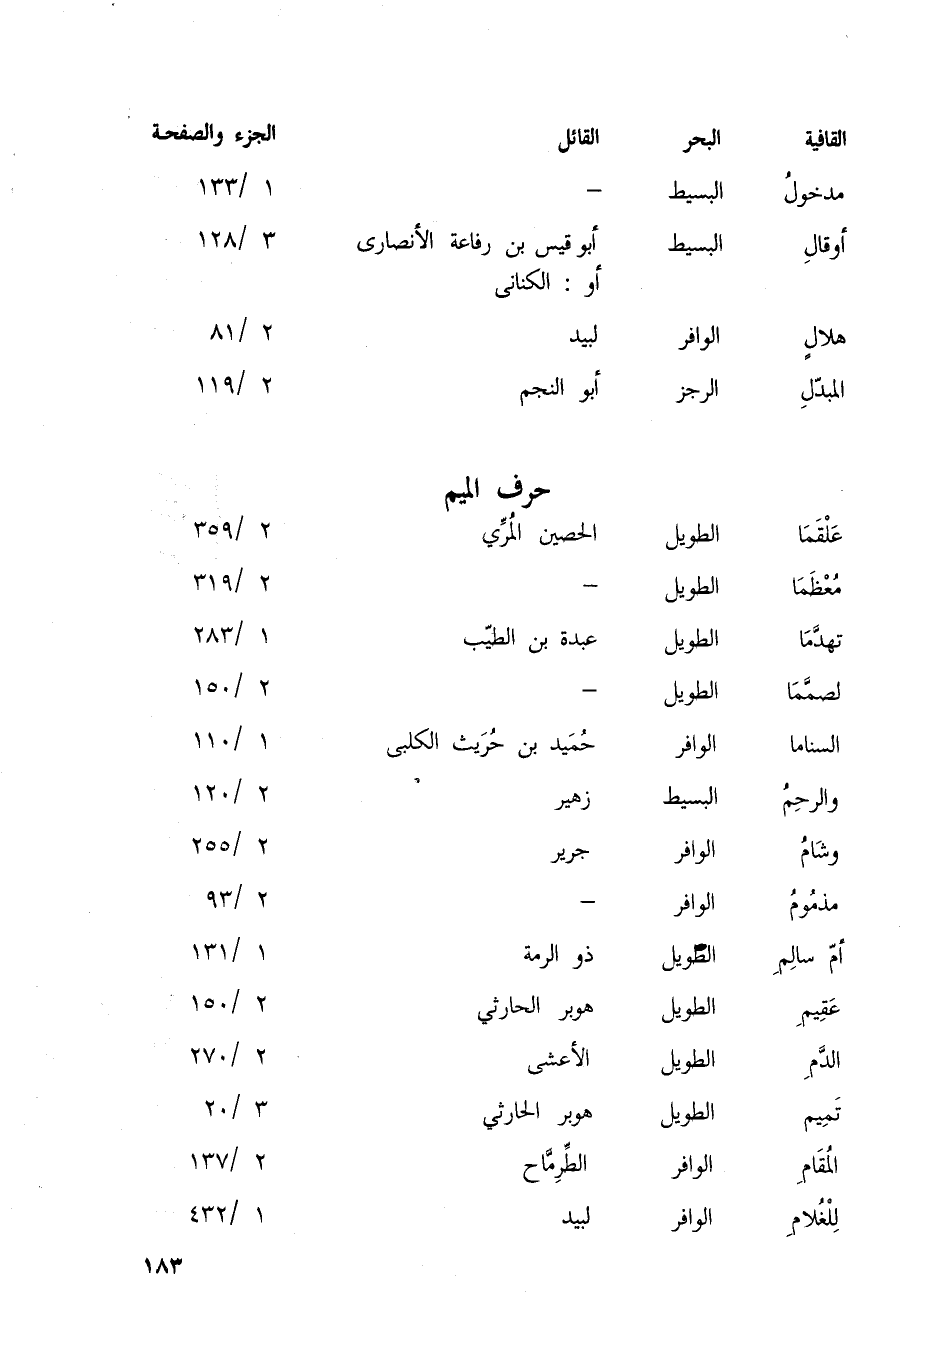 القافية البحر القائل الجزء والصفحة
مدخولُ البسيط — ١ /١٣٣
أوقالِ البسيط أبو قيس بن رفاعة الأنصارى ٣ /١٢٨
أو : الكنانى
هلالٍ الوافر لبيد ٢ /٨١
المبدّلِ الرجز أبو النجم ٢ /١١٩
حرف الميم
عَلْقَمَا الطويل الحصين المُرِّي ٢ /٣٥٩
مُعْظَمَا الطويل — ٢ /٣١٩
تهدَّمَا الطويل عبدة بن الطيّب ١ /٢٨٣
لصمَّمَا الطويل — ٢ /١٥٠
السناما الوافر حُمَيد بن حُرَيث الكلبى ١ /١١٠
والرحِمُ البسيط زهير ٢ /١٢٠
وشَامُ الوافر جرير ٢ /٢٥٥
مذمُومُ الوافر — ٢ /٩٣
أمّ سالِمِ الطويل ذو الرمة ١ /١٣١
عَقِيمِ الطويل هوبر الحارثي ٢ /١٥٠
الدَّمِ الطويل الأعشى ٢ /٢٧٠
تَمِيم الطويل هوبر الحارثي ٣ /٢٠
المُقَامِ الوافر الطِّرِمَّاح ٢ /١٣٧
لِلْغُلامِ الوافر لبيد ١ /٤٣٢
١٨٣